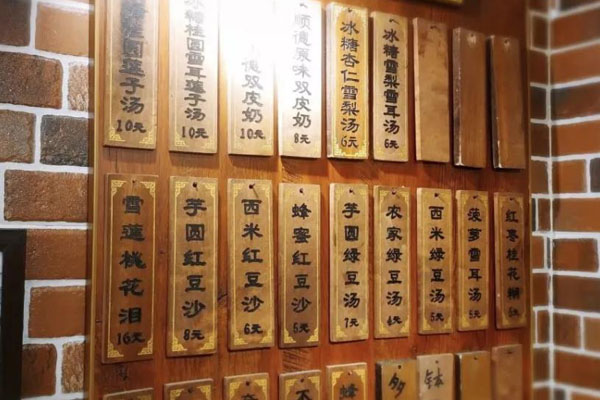 桂圆莲子汤
10元
冰糖桂圆雪耳莲子汤
10元
德双皮奶
10元
顺德原味双皮奶
8元
冰糖杏仁雪梨汤
6元
冰糖雪梨雪耳汤
6元
雪莲桃花泪
16元
芋圆红豆沙
8元
西米红豆沙
6元
蜂蜜红豆沙
5元
芋圆绿豆汤
7元
农家绿豆汤
4元
西米绿豆汤
5元
菠萝雪耳汤
5元
红枣桂花糊
6元